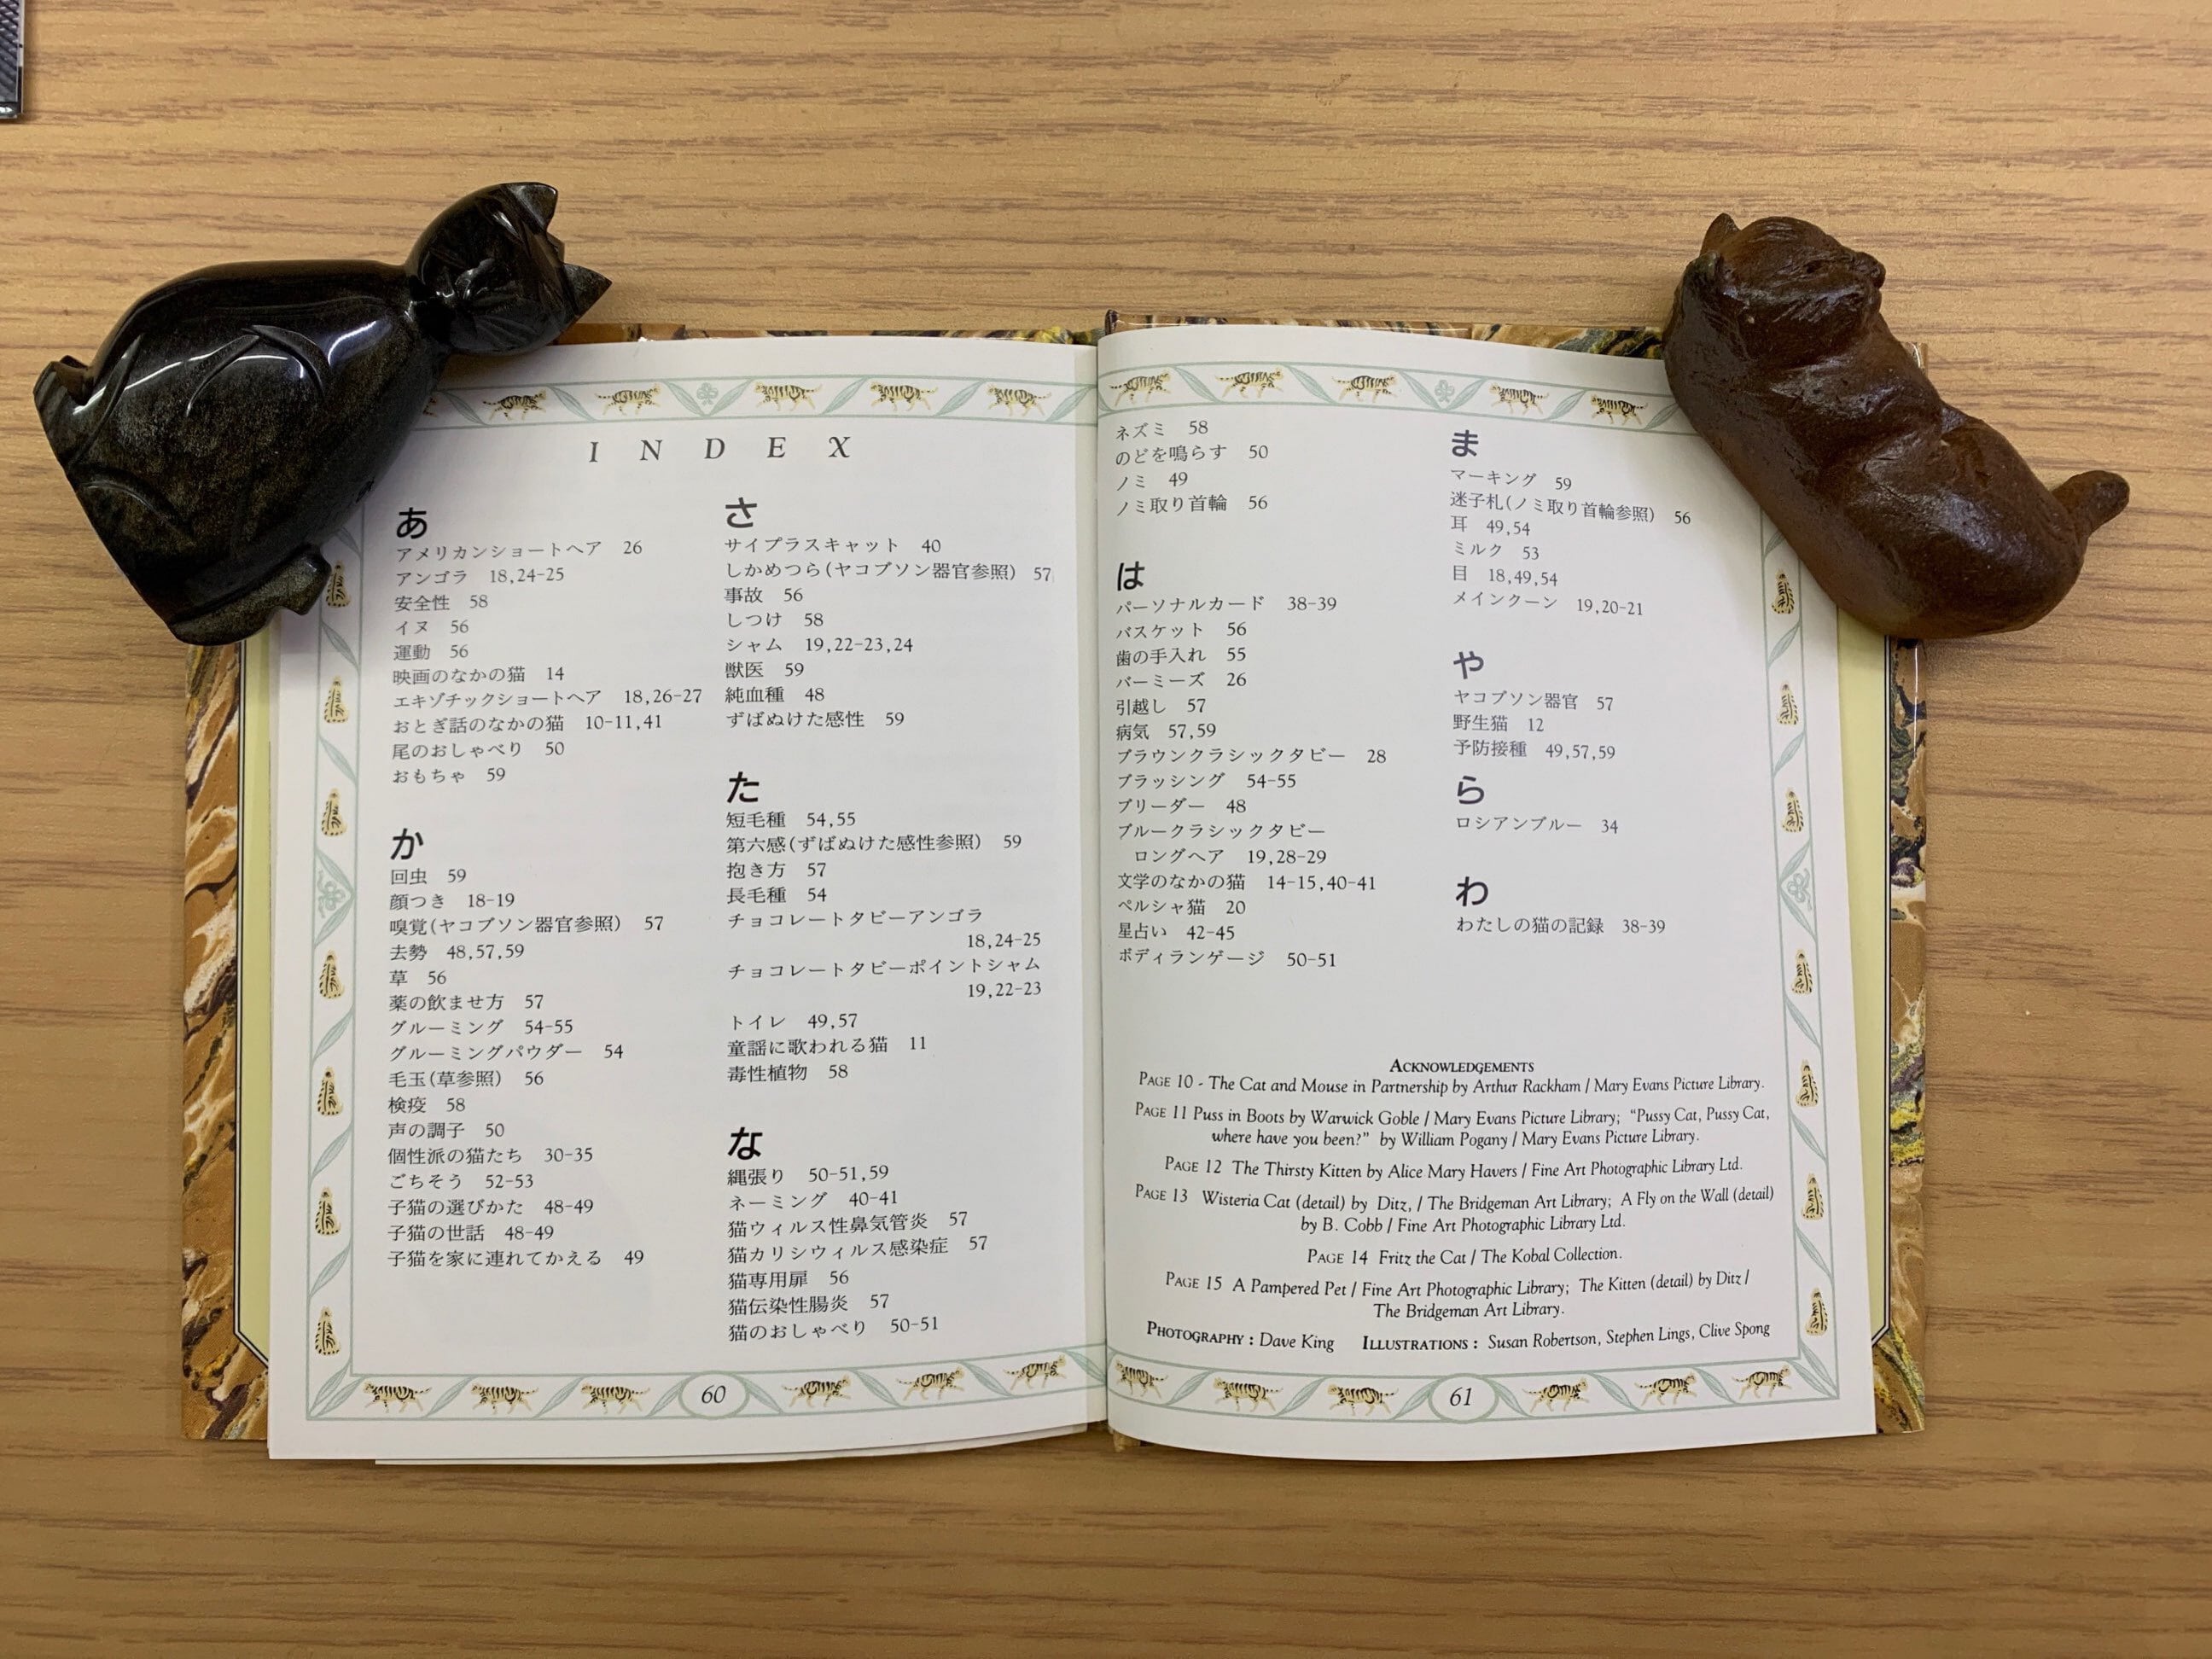 INDEX
あ
アメリカンショートヘア 26
アンゴラ 18,24-25
安全性 58
イヌ 56
運動 56
映画のなかの猫 14
エキゾチックショートヘア 18,26-27
おとぎ話のなかの猫 10-11,41
尾のおしゃべり 50
おもちゃ 59
か
回虫 59
顔つき 18-19
嗅覚(ヤコブソン器官参照) 57
去勢 48,57,59
草 56
薬の飲ませ方 57
グルーミング 54-55
グルーミングパウダー 54
毛玉(草参照) 56
検疫 58
声の調子 50
個性派の猫たち 30-35
ごちそう 52-53
子猫の選びかた 48-49
子猫の世話 48-49
子猫を家に連れてかえる 49
さ
サイプラスキャット 40
しかめつら(ヤコブソン器官参照) 57
事故 56
しつけ 58
シャム 19,22-23,24
獣医 59
純血種 48
ずばぬけた感性 59
た
短毛種 54,55
第六感(ずばぬけた感性参照) 59
抱き方 57
長毛種 54
チョコレートタビーアンゴラ
18,24-25
チョコレートタビーポイントシャム
19,22-23
トイレ 49,57
童謡に歌われる猫 11
毒性植物 58
な
縄張り 50-51,59
ネーミング 40-41
猫ウィルス性鼻気管炎 57
猫カリシウィルス感染症 57
猫専用扉 56
猫伝染性腸炎 57
猫のおしゃべり 50-51
60
ネズミ 58
のどを鳴らす 50
ノミ 49
ノミ取り首輪 56
は
パーソナルカード 38-39
バスケット 56
歯の手入れ 55
バーミーズ 26
引越し 57
病気 57,59
ブラウンクラシックタビー 28
ブラッシング 54-55
ブリーダー 48
ブルークラシックタビー
ロングヘア 19,28-29
文学のなかの猫 14-15,40-41
ペルシャ猫 20
星占い 42-45
ボディランゲージ 50-51
ま
マーキング 59
迷子札(ノミ取り首輪参照) 56
耳 49,54
ミルク 53
目 18,49,54
メインクーン 19,20-21
や
ヤコブソン器官 57
野生猫 12
予防接種 49,57,59
ら
ロシアンブルー 34
わ
わたしの猫の記録 38-39
ACKNOWLEDGEMENTS
PAGE 10 - The Cat and Mouse in Partnership by Arthur Rackham / Mary Evans Picture Library.
PAGE 11 Puss in Boots by Warwick Goble / Mary Evans Picture Library; "Pussy Cat, Pussy Cat,
where have you been?" by William Pogany / Mary Evans Picture Library.
PAGE 12 The Thirsty Kitten by Alice Mary Havers / Fine Art Photographic Library Ltd.
PAGE 13 Wisteria Cat (detail) by Ditz, / The Bridgeman Art Library; A Fly on the Wall (detail)
by B. Cobb / Fine Art Photographic Library Ltd.
PAGE 14 Fritz the Cat / The Kobal Collection.
PAGE 15 A Pampered Pet / Fine Art Photographic Library; The Kitten (detail) by Ditz /
The Bridgeman Art Library.
PHOTOGRAPHY : Dave King ILLUSTRATIONS : Susan Robertson, Stephen Lings, Clive Spong
61